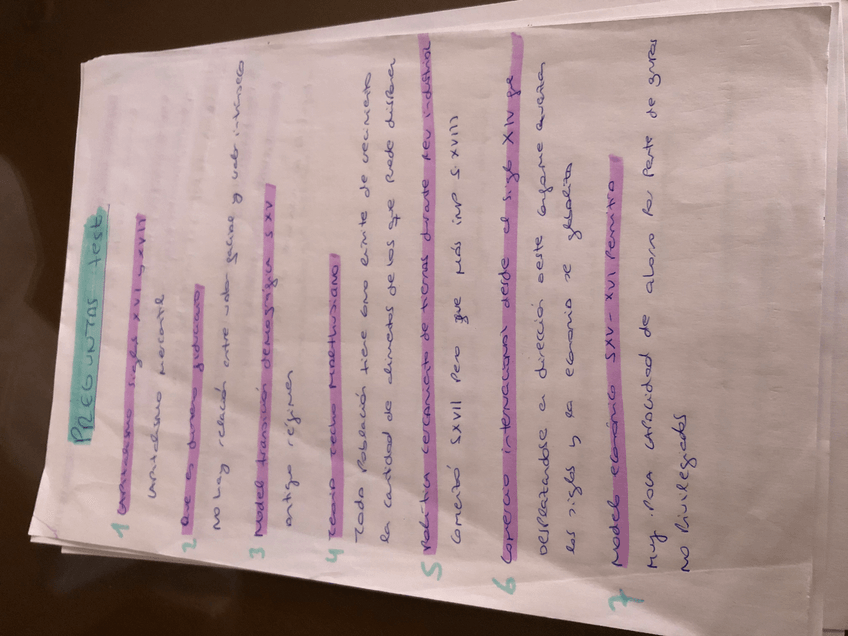 PREGUNTAS test
1 Capitalismo siglos XVI y XVII
capitalismo mercantil
2 Que es dinero fiduciario
no hay relación entre valor facial y valor intrínseco
3 Model transición demográfica S XV
antiguo régimen
4 Teoría techo Malthusiano
Toda población tiene como límite de crecimiento
la cantidad de alimentos de los que puede disponer
5 Política cercamiento de tierras durante rev industrial
comenzó SXVII pero que más imp S. XVIII
6 Comercio internacional desde el siglo XIV que
desplazandose en dirección oeste conforme avanzan
los siglos y la economía se globaliza
7 Modelo económico SXV-XVI permitía
Muy poca capacidad de ahorro por parte de grupos
no privilegiados